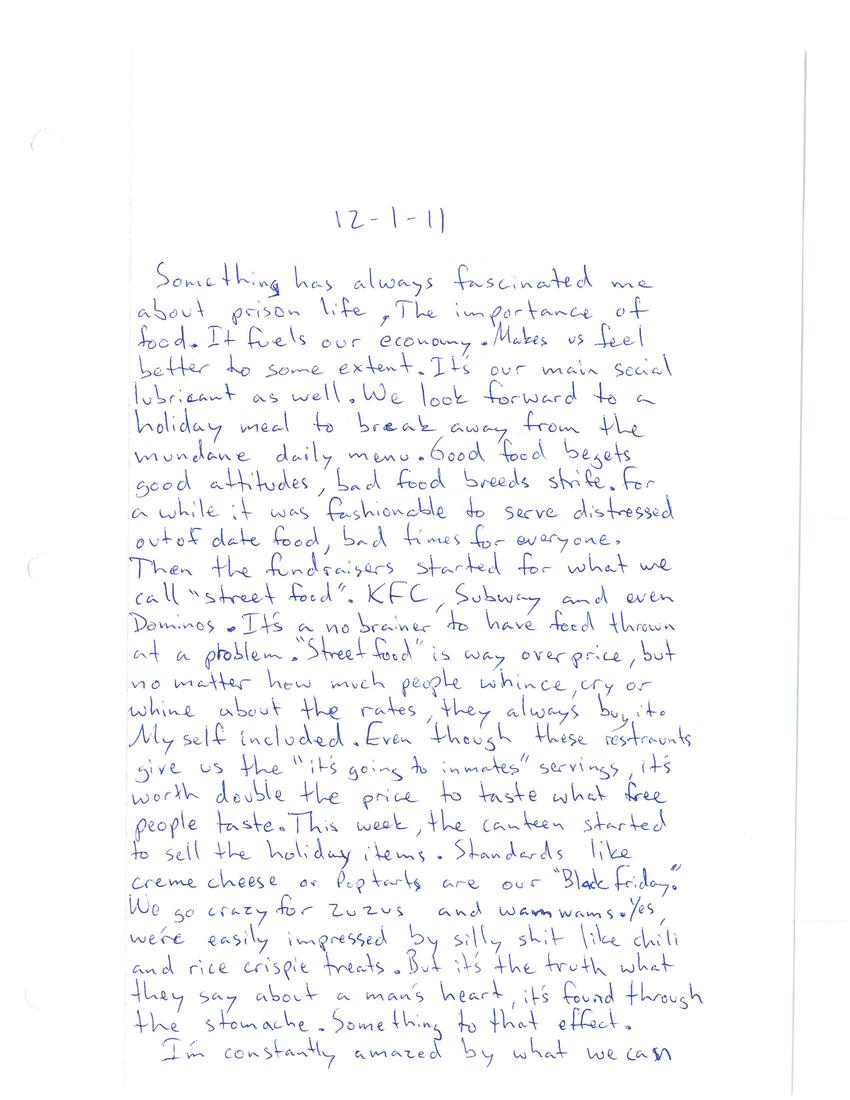 12-1-11
Something has always fascinated me
about prison life, The importance of
food. It fuels our economy. Makes us feel
better to some extent. It's our main social
lubricant as well. We look forward to a
holiday meal to break away from the
mundane daily menu. Good food begets
good attitudes, bad food breeds strife. For
a while it was fashionable to serve distressed
out of date food, bad times for everyone.
Then the fundraisers started for what we
call "street food". KFC, Subway and even
Dominos. It's a no brainer to have food thrown
at a problem. "Street food" is way over price, but
no matter how much people whince, cry or
whine about the rates, they always buy it.
My self included. Even though these restraunts
give us the "it's going to inmates" servings, it's
worth double the price to taste what free
people taste. This week, the canteen started
to sell the holiday items. Standards like
creme cheese or Poptarts are our "Black Friday."
We go crazy for zuzus and wamwams. Yes,
we're easily impressed by silly shit like chili
and rice crispie treats. But it's the truth what
they say about a man's heart, it's found through
the stomache. Something to that effect.
I'm constantly amazed by what we can